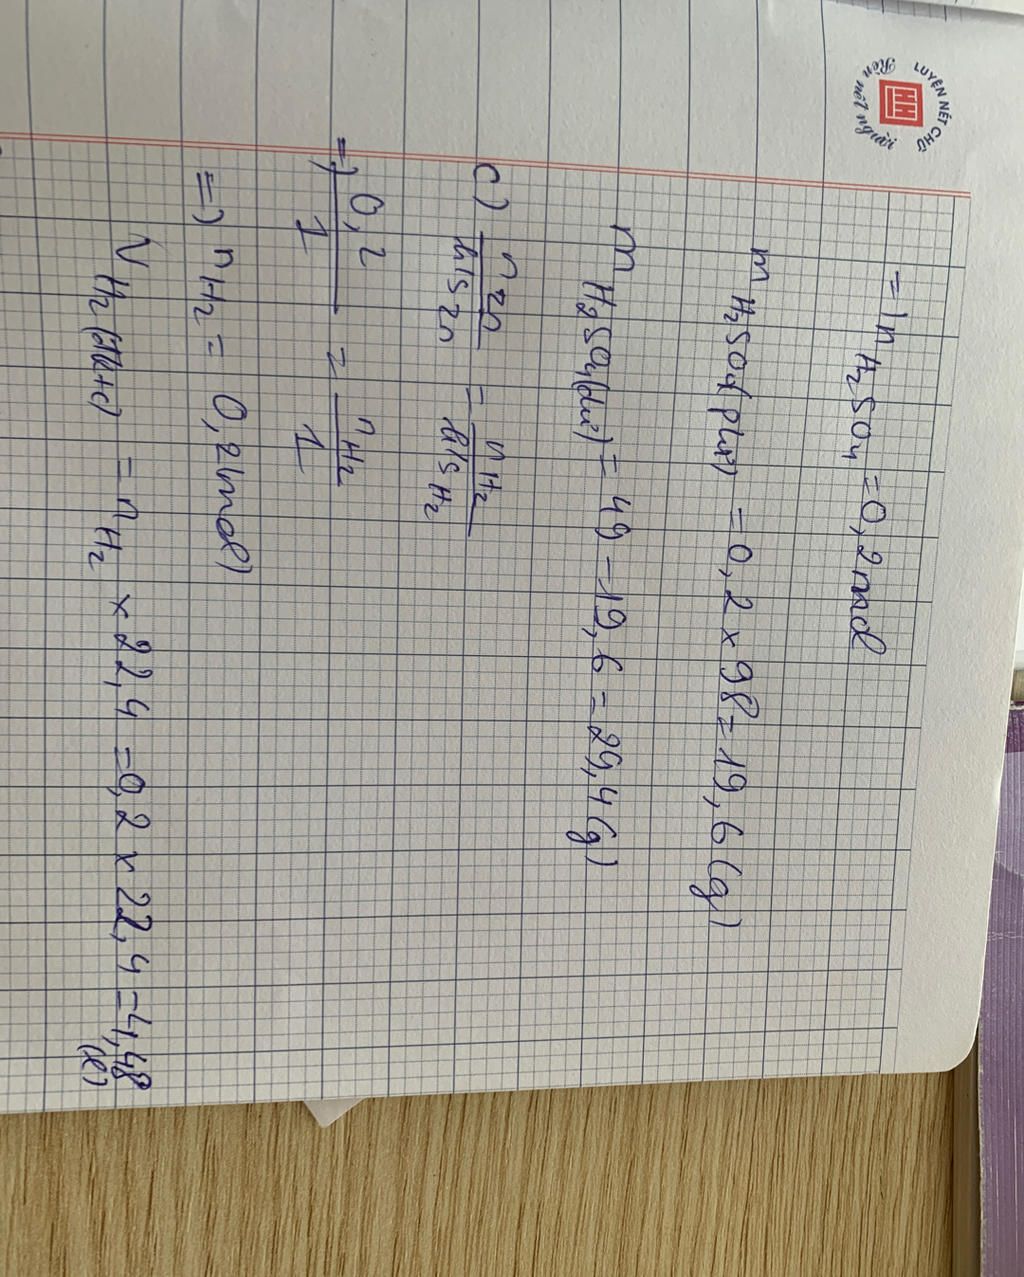 LUYỆN NÉT CHỮ
Rèn nết người
HN
=) n H₂SO₄ = 0,2 mol
m H₂SO₄ (pư) = 0,2 × 98 = 19,6 (g)
m H₂SO₄ (dư) = 49 - 19,6 = 29,4 (g)
c) n Zn / hls Zn = n H₂ / hls H₂
=) 0,2 / 1 = n H₂ / 1
=) n H₂ = 0,2 (mol)
V H₂ (đktc) = n H₂ × 22,4 = 0,2 × 22,4 = 4,48
(l)